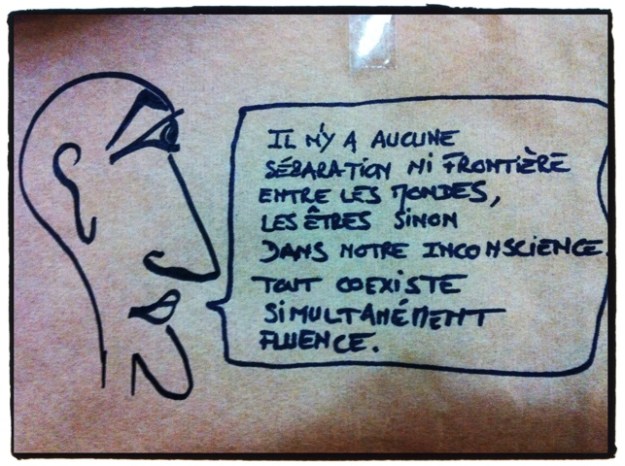 IL N'Y A AUCUNE
SÉPARATION NI FRONTIÈRE
ENTRE LES MONDES,
LES ÊTRES SINON
DANS NOTRE INCONSCIENCE.
TOUT COEXISTE
SIMULTANÉMENT
FLUENCE.